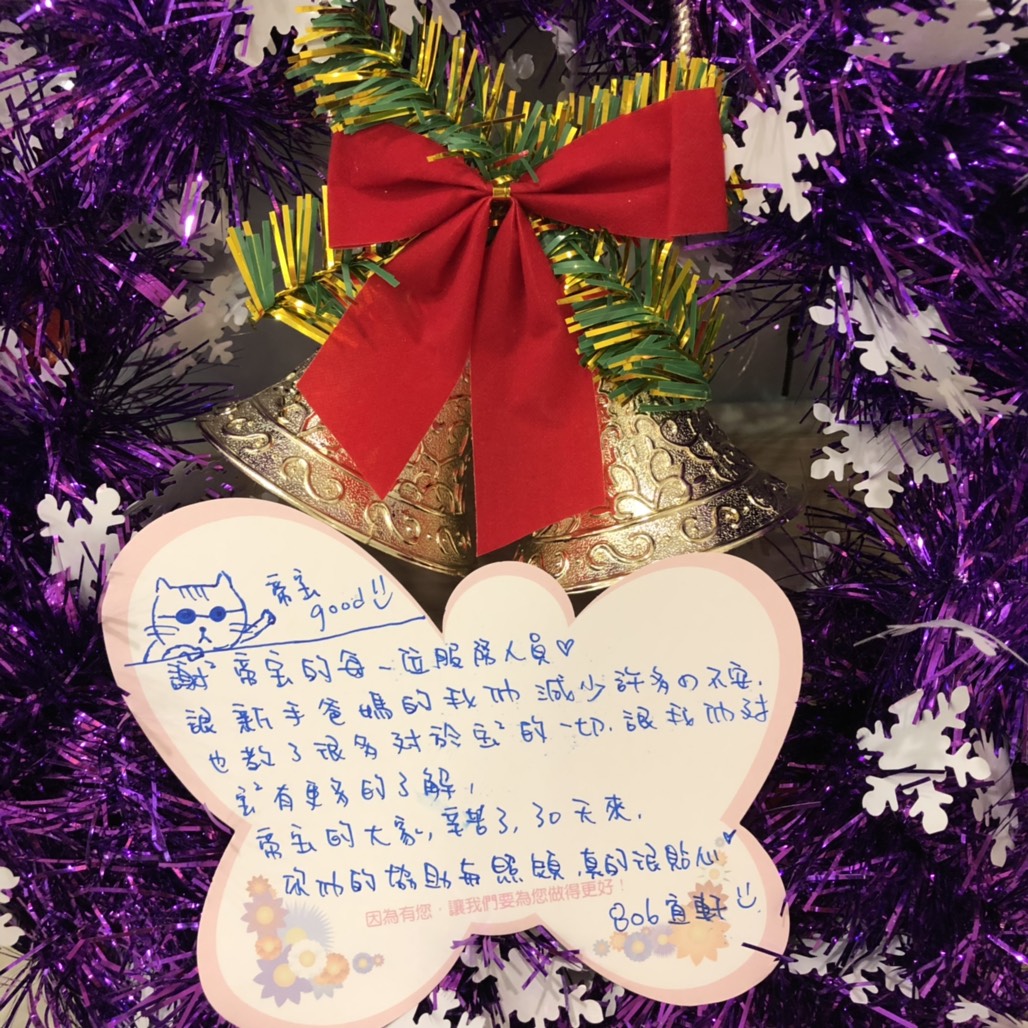 帝宝
good
謝² 帝宝的每一位服務人員♡
讓新手爸媽的我们減少許多の不安.
也教了很多対於宝²的一切.讓我们対
宝²有更多的了解,
帝宝的大家,辛苦了,30天來,
你们的協助与照顧,真的很貼心♡
因為有您,讓我們要為您做得更好!
806宜軒